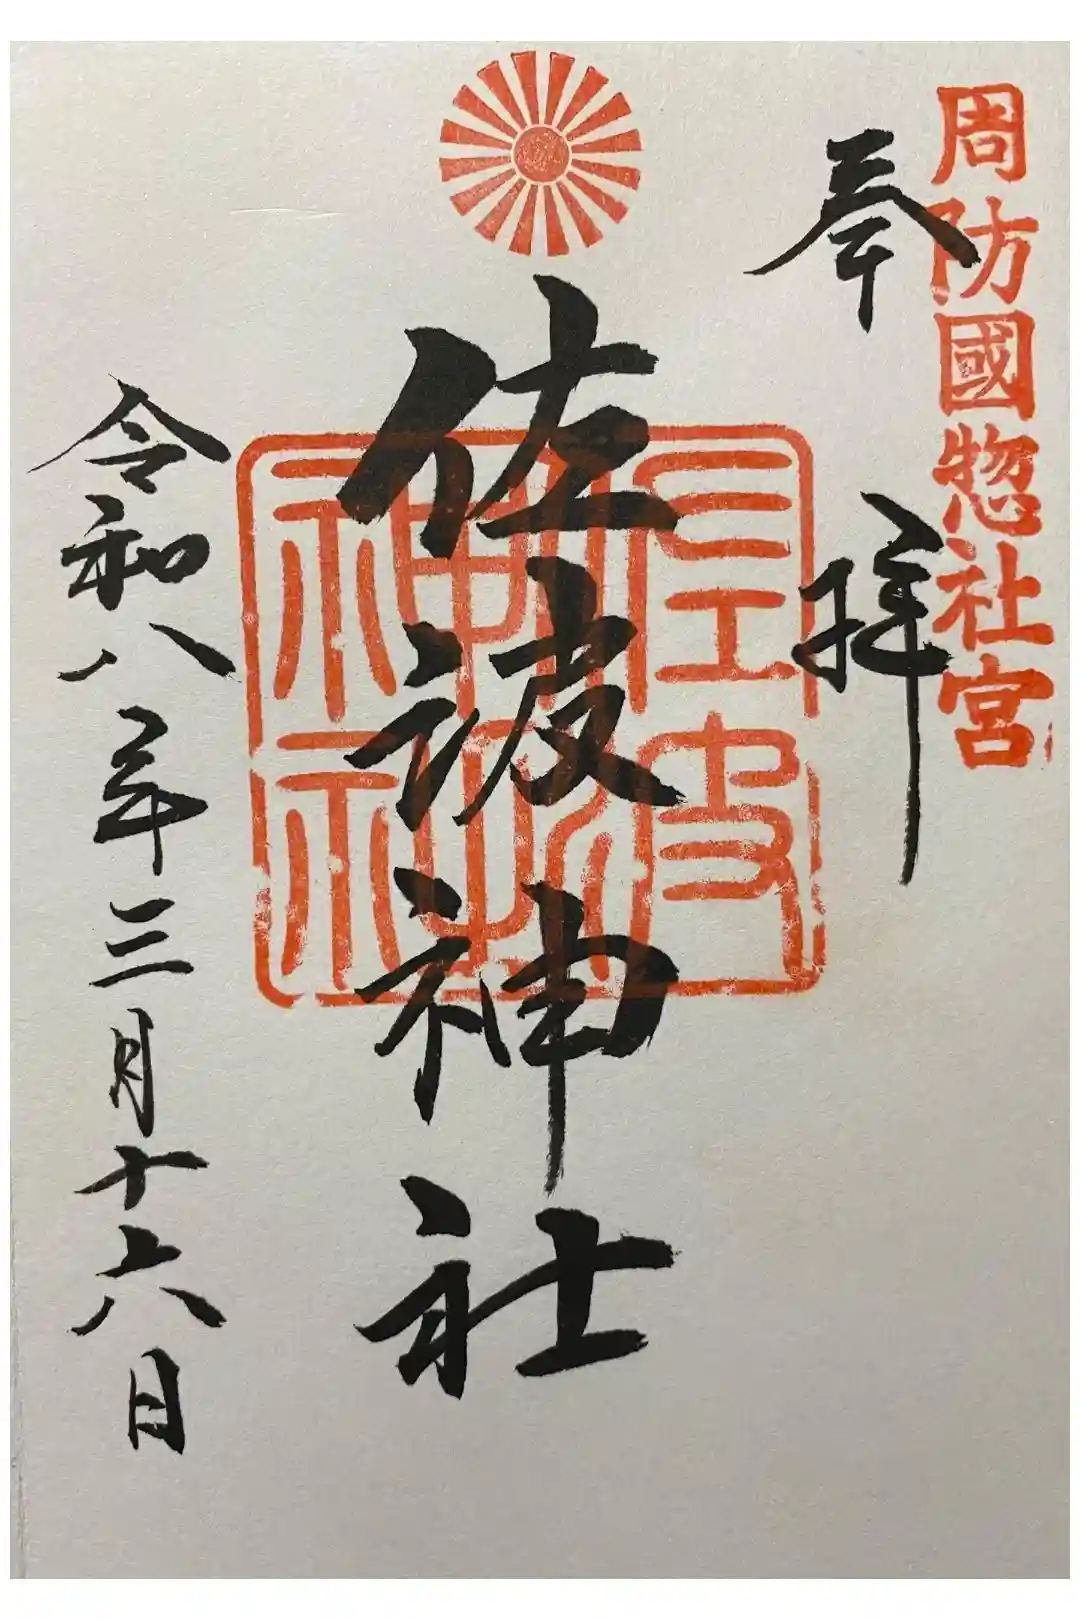 周防國惣社宮
奉拝
佐波神社
佐波神社
令和八年三月十六日